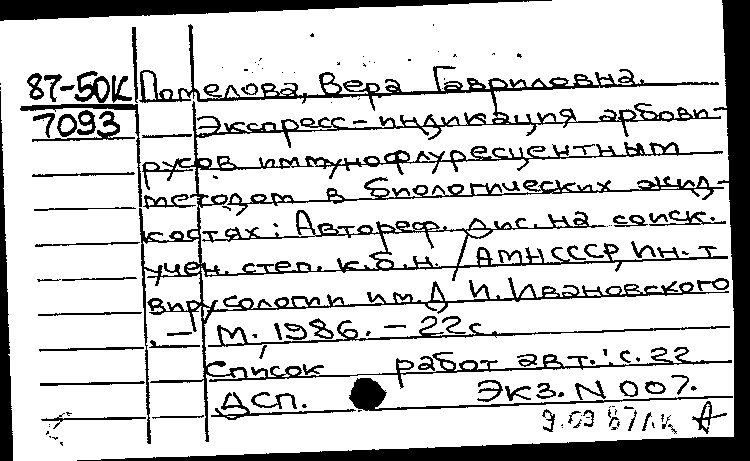 87-50К Помелова, Вера Гавриловна.
7093 Экспресс-индикация арбови-
русов иммунофлуресцентным
методом в биологических жид-
костях: Автореф. дис. на соиск.
учен. степ. к.б.н. / АМН СССР, Ин-т
вирусологии им. Д. И. Ивановского
. – М., 1986. – 22 с.
Список работ авт.: с. 22
ДСП. Экз. N 007.
9.09 87 лк А